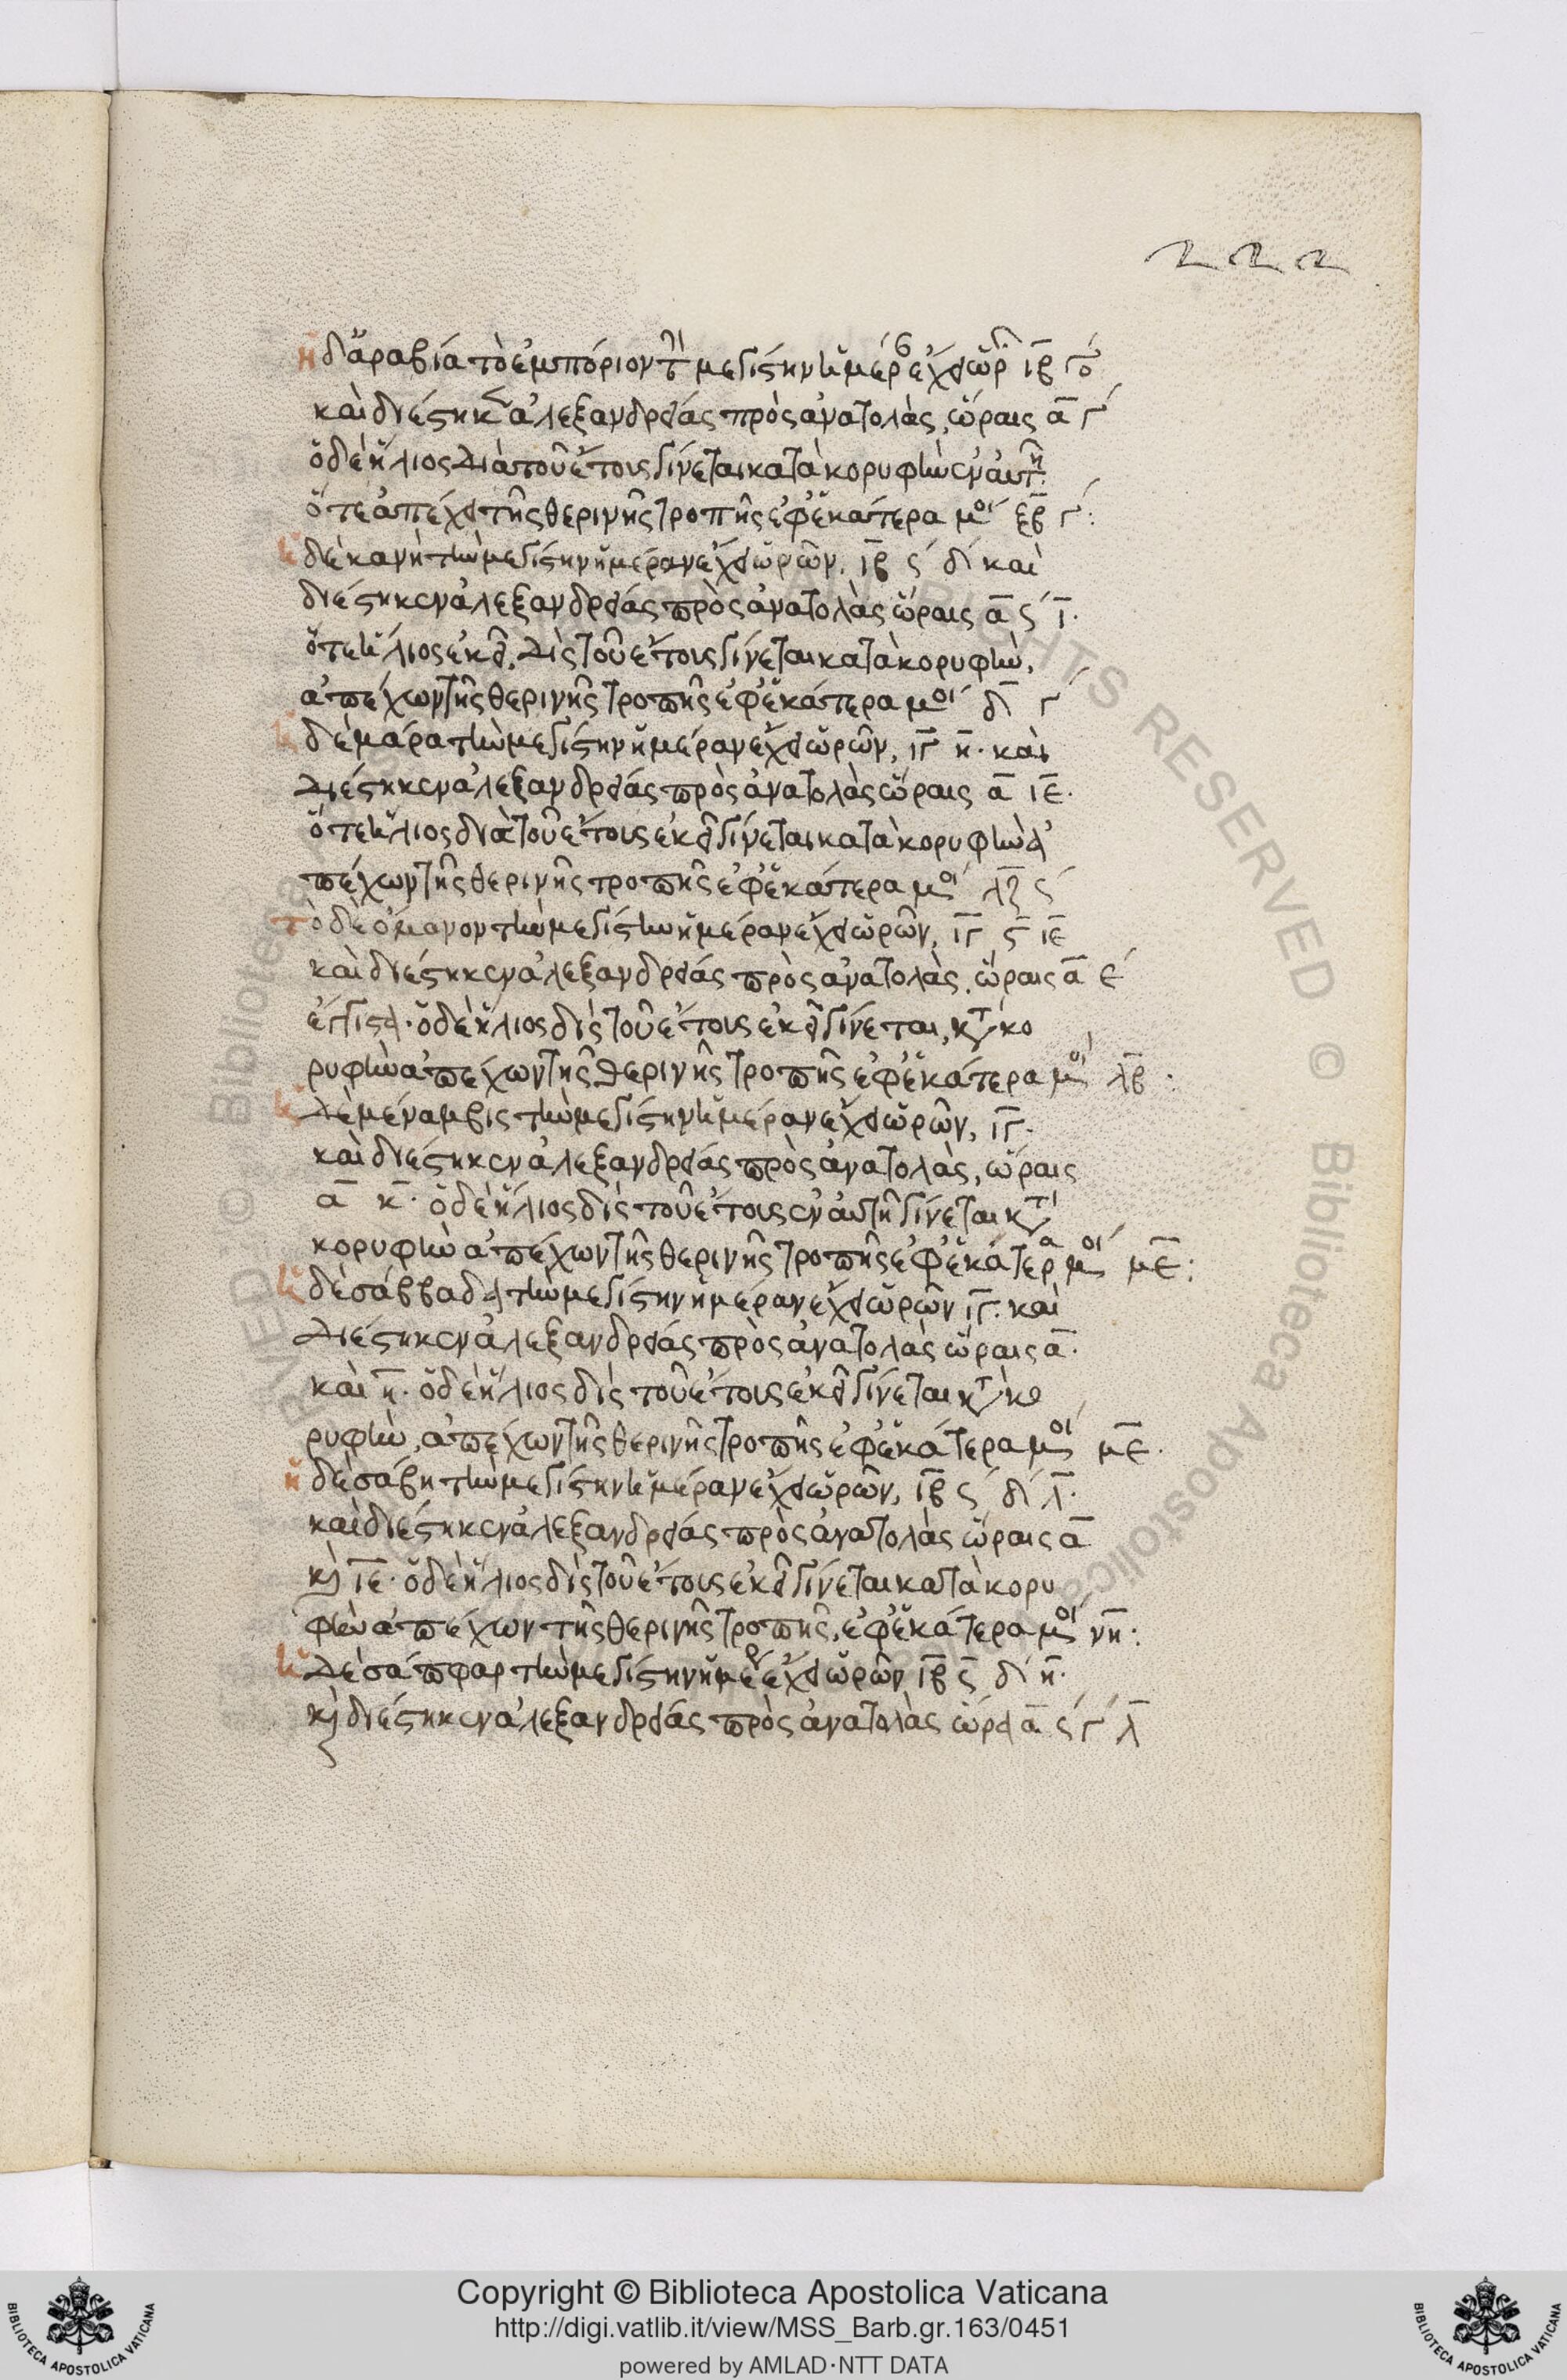 222
ἡ δ' ἀραβία τὸ ἐμπόριον τὴν μεγίστην ἡμέρ ἔχει ὡρ ιβ γο
καὶ διέστηκεν ἀλεξανδρείας πρὸς ἀνατολὰς, ὥραις α γ΄
ὁ δὲ ἥλιος διὰ τοῦ ἔτους γίνεται κατὰ κορυφὴν ἐν αὐτῇ:
ὅτε ἀπέχει τῆς θερινῆς τροπῆς ἐφ' ἑκάτερα μοί ξβ γ΄:
ἡ δὲ κανὴ τὴν μεγίστην ἡμέραν ἔχει ὡρῶν, ιβ ς΄ δ΄ καὶ
διέστηκεν ἀλεξανδρείας πρὸς ἀνατολὰς ὥραις α ς΄ ι.
ὅτε ἥλιος ἐκεῖ, δὶς τοῦ ἔτους γίνεται κατὰ κορυφὴν,
ἀπέχων τῆς θερινῆς τροπῆς ἐφ' ἑκάτερα μοί δ γ΄
ἡ δὲ μάρα τὴν μεγίστην ἡμέραν ἔχει ὡρῶν, ιγ η. καὶ
διέστηκεν ἀλεξανδρείας πρὸς ἀνατολὰς ὥραις α ιε.
ὅτε ἥλιος διὰ τοῦ ἔτους ἐκεῖ γίνεται κατὰ κορυφὴν ἀ
πέχων τῆς θερινῆς τροπῆς ἐφ' ἑκάτερα μοί λζ ς΄
τὸ δὲ ὄμανον τὴν μεγίστην ἡμέραν ἔχει ὡρῶν, ιγ ς ιε
καὶ διέστηκεν ἀλεξανδρείας πρὸς ἀνατολὰς, ὥραις α ε΄
ἔγγιστα. ὁ δὲ ἥλιος δὶς τοῦ ἔτους ἐκεῖ γίνεται, κτ κο
ρυφὴν ἀπέχων τῆς θερινῆς τροπῆς ἐφ' ἑκάτερα μοί λβ:
ἡ δὲ μέναμβις τὴν μεγίστην ἡμέραν ἔχει ὡρῶν, ιγ.
καὶ διέστηκεν ἀλεξανδρείας πρὸς ἀνατολὰς, ὥραις
α κ. ὁ δὲ ἥλιος δὶς τοῦ ἔτους ἐν αὐτῇ γίνεται κτ
κορυφὴν ἀπέχων τῆς θερινῆς τροπῆς ἐφ' ἑκάτερα μοί με:
ἡ δὲ σάββαθα τὴν μεγίστην ἡμέραν ἔχει ὡρῶν ιγ. καὶ
διέστηκεν ἀλεξανδρείας πρὸς ἀνατολὰς ὥραις α.
καὶ η. ὁ δὲ ἥλιος δὶς τοῦ ἔτους ἐκεῖ γίνεται κτ κο
ρυφὴν, ἀπέχων τῆς θερινῆς τροπῆς ἐφ' ἑκάτερα μοί με.
ἡ δὲ σάβη τὴν μεγίστην ἡμέραν ἔχει ὡρῶν, ιβ ς΄ δ΄ λ.
καὶ διέστηκεν ἀλεξανδρείας πρὸς ἀνατολὰς ὥραις α
κὶ ιε. ὁ δὲ ἥλιος δὶς τοῦ ἔτους ἐκεῖ γίνεται κατὰ κορυ
φὴν ἀπέχων τῆς θερινῆς τροπῆς, ἐφ' ἑκάτερα μοί νη:
ἡ δὲ σάπφαρ τὴν μεγίστην ἡμέρ ἔχει ὡρῶν ιβ ς δ΄ η.
κὶ διέστηκεν ἀλεξανδρείας πρὸς ἀνατολὰς ὥρα α ς΄ γ΄ λ
Copyright © Biblioteca Apostolica Vaticana
http://digi.vatlib.it/view/MSS_Barb.gr.163/0451
powered by AMLAD·NTT DATA